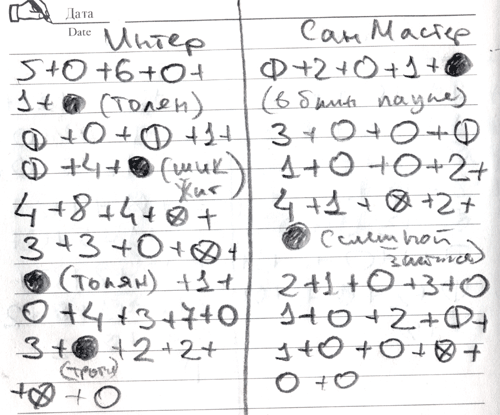 Дата
Date
Интер
5+0+6+0+
1+● (толян)
⦶+0+⦶+1+
⦶+4+● (шик
жит)
4+8+4+⊗+
3+3+0+⊗+
● (толян) +1+
0+4+3+7+0
3+●+2+2+
+⊗+0
Сан Мастер
⦶+2+0+1+●
(в бмин паузе)
3+0+0+⦶
1+0+0+2+
4+1+⊗+2+
●
2+1+0+3+0
1+0+2+⦶+
1+0+0+⊗+
0+0